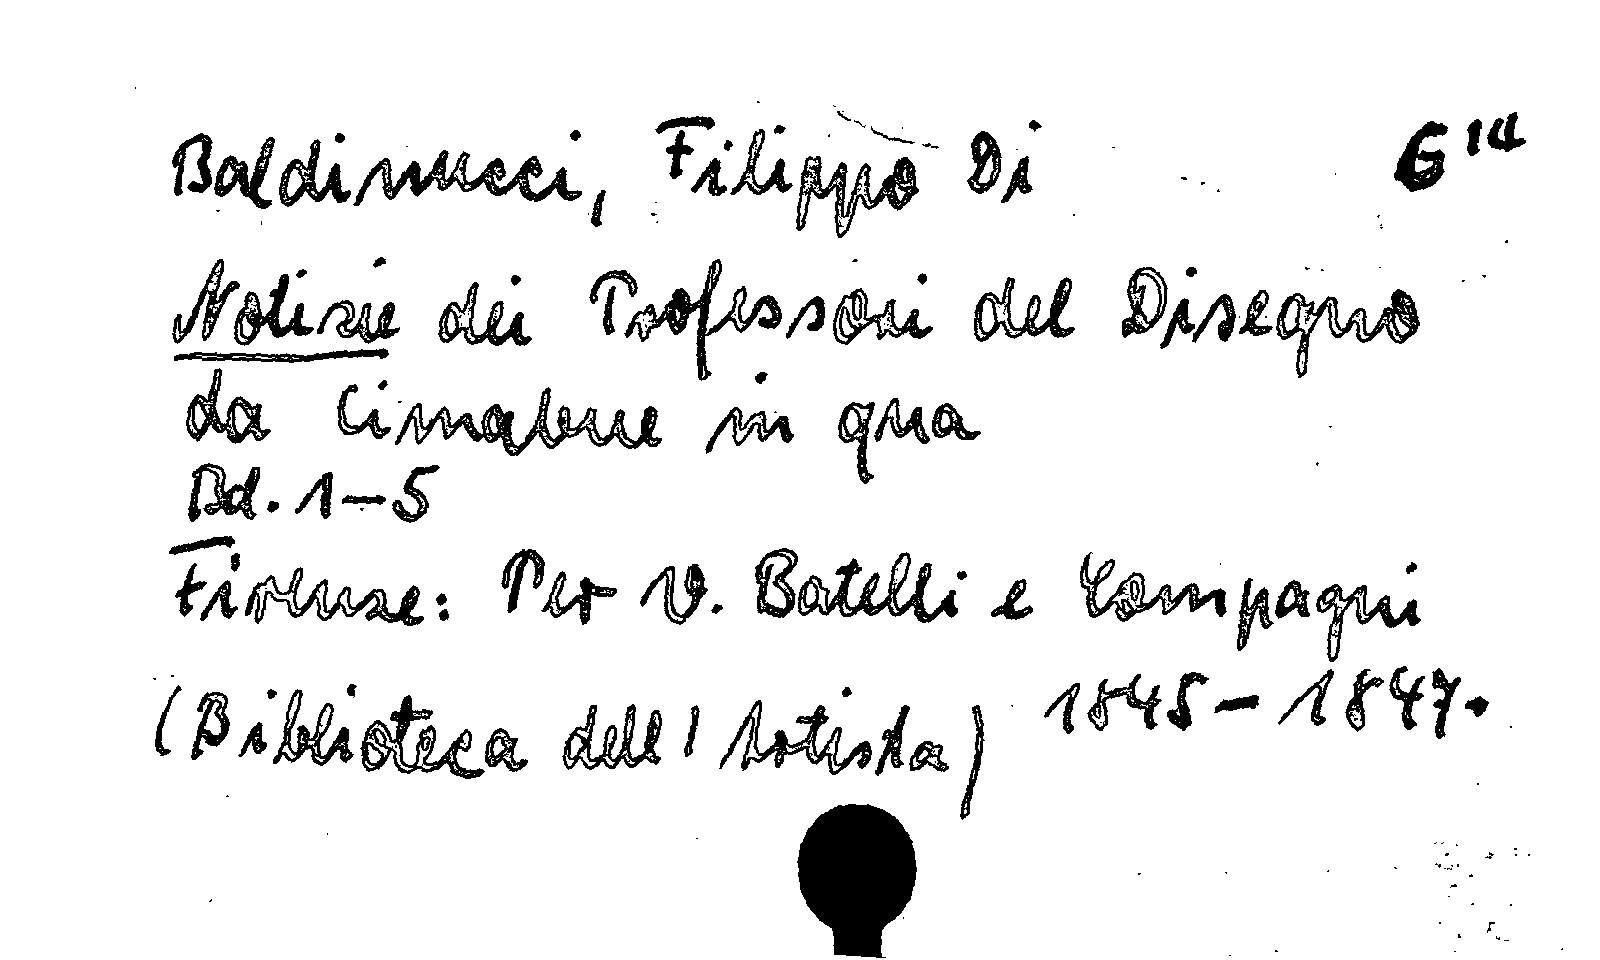 Baldinucci, Filippo Di G 14
Notizie dei Professori del Disegno
da Cimabue in qua
Bd. 1–5
Firenze: Per V. Batelli e Compagni
(Biblioteca dell' Artista) 1845–1847.